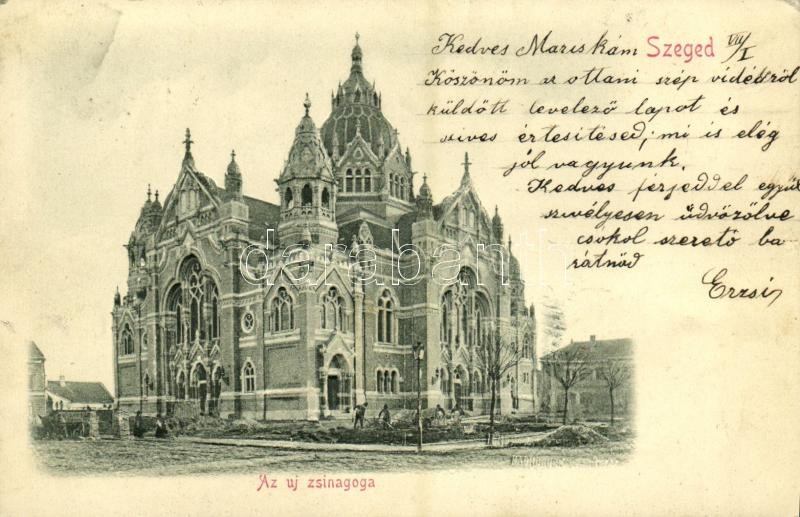 Kedves Mariskám Szeged VII/I
Köszönöm az ottani szép vidékről
küldött levelező lapot és
szives értesitésed; mi is elég
jól vagyunk.
Kedves férjeddel együtt
szivélyesen üdvözölve
csókol szerető ba
rátnőd
Erzsi
darabanth
Az uj zsinagoga